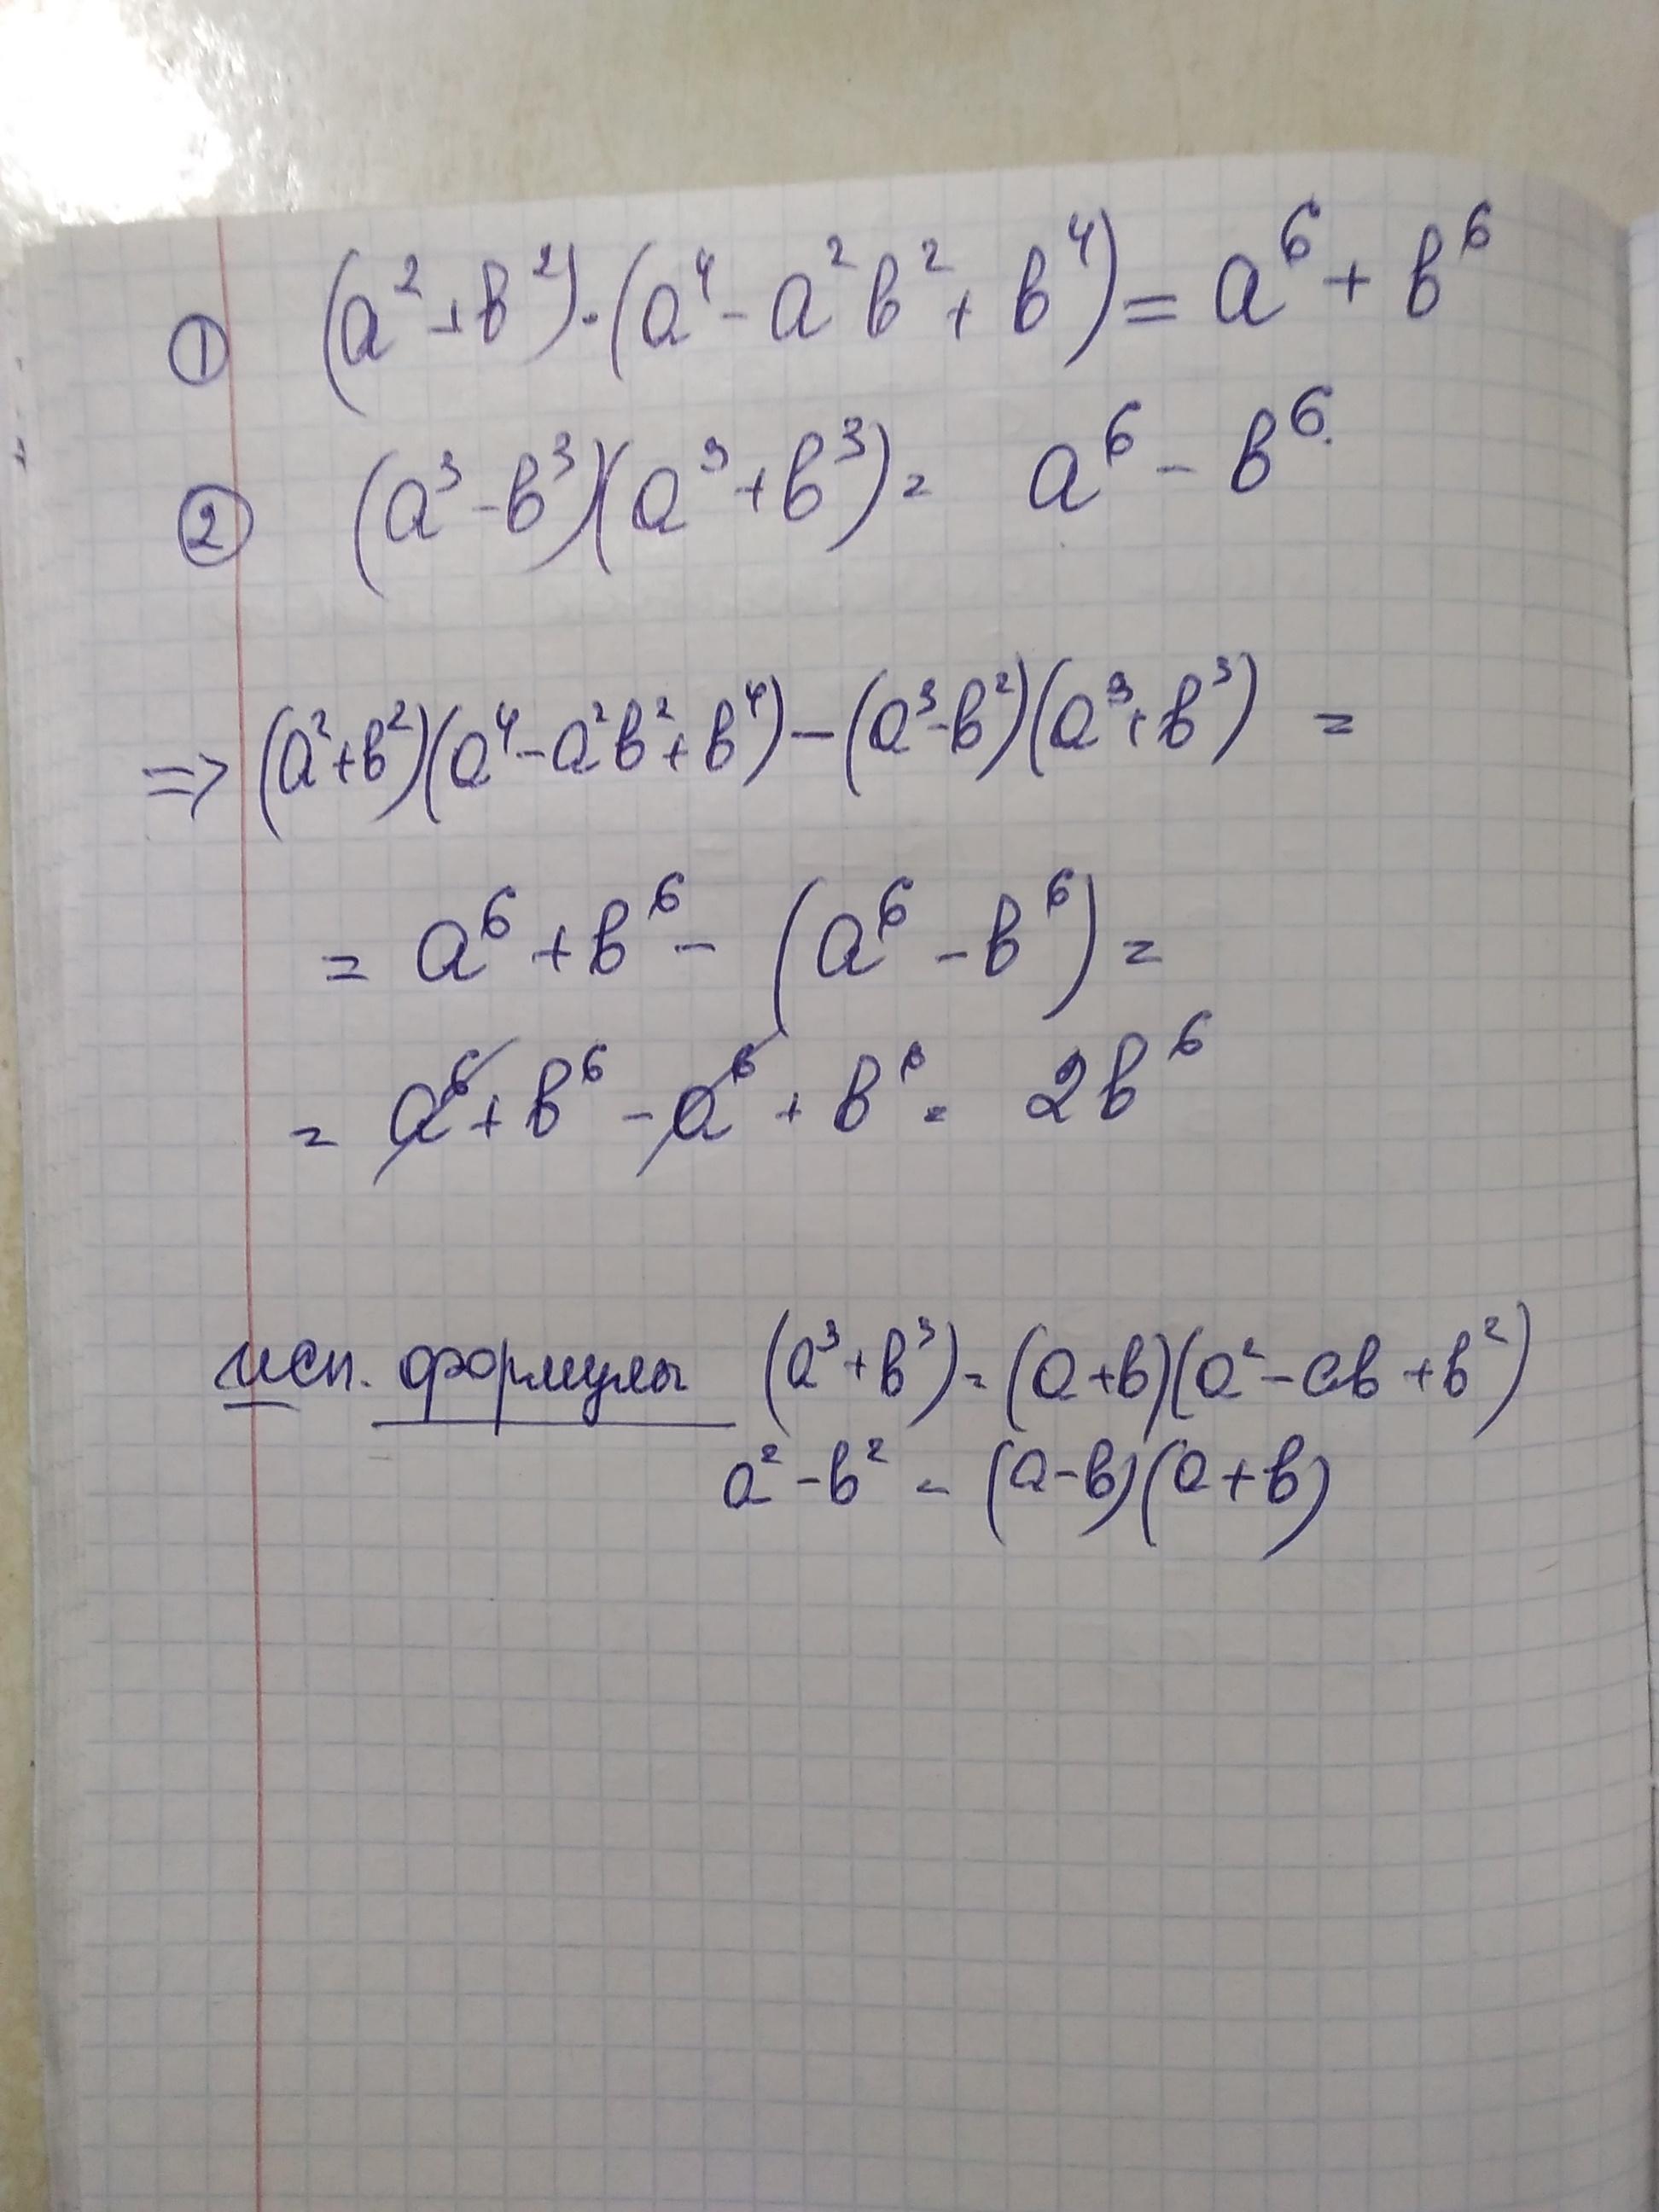 ① (a²+b²)·(a⁴-a²b²+b⁴)=a⁶+b⁶
② (a³-b³)(a³+b³)= a⁶-b⁶.
=> (a²+b²)(a⁴-a²b²+b⁴)-(a³-b²)(a³+b³) =
= a⁶+b⁶- (a⁶-b⁶)=
= a⁶+b⁶-a⁶+b⁶= 2b⁶
исп. формулы (a³+b³)=(a+b)(a²-ab+b²)
a²-b²=(a-b)(a+b)